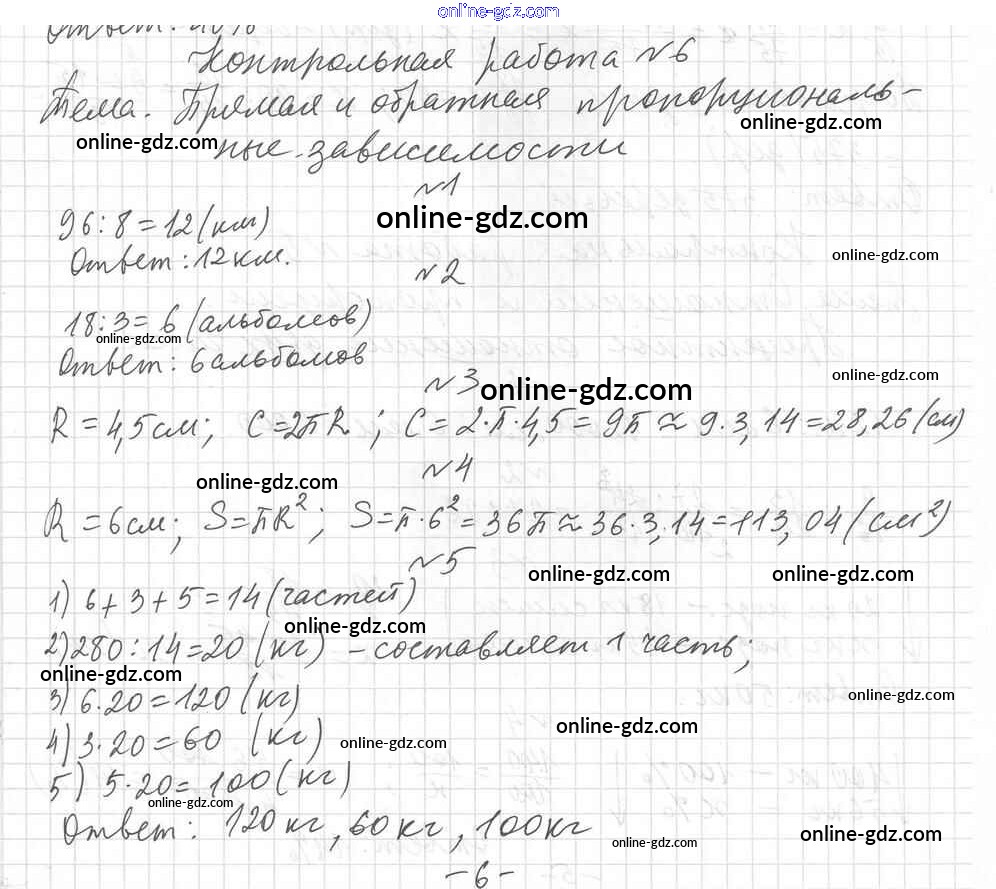 online-gdz.com
Ответ: 40%
Контрольная работа №6
Тема. Прямая и обратная пропорциональ-
online-gdz.com
online-gdz.com
ные зависимости
№1
96:8=12(км)
online-gdz.com
Ответ:12км.
online-gdz.com
№2
18:3=6(альбомов)
online-gdz.com
Ответ: 6альбомов
online-gdz.com
№3
online-gdz.com
R=4,5см; C=2πR; C=2·π·4,5=9π≈9·3,14=28,26(см)
№4
online-gdz.com
R=6см; S=πR²; S=π·6²=36π≈36·3,14=113,04(см²)
№5
online-gdz.com
online-gdz.com
1) 6+3+5=14(частей)
online-gdz.com
2)280:14=20(кг) –составляет 1 часть;
online-gdz.com
3) 6·20=120(кг)
online-gdz.com
online-gdz.com
4) 3·20=60 (кг)
online-gdz.com
5) 5·20=100(кг)
online-gdz.com
Ответ: 120кг, 60кг, 100кг
online-gdz.com
online-gdz.com
-6-